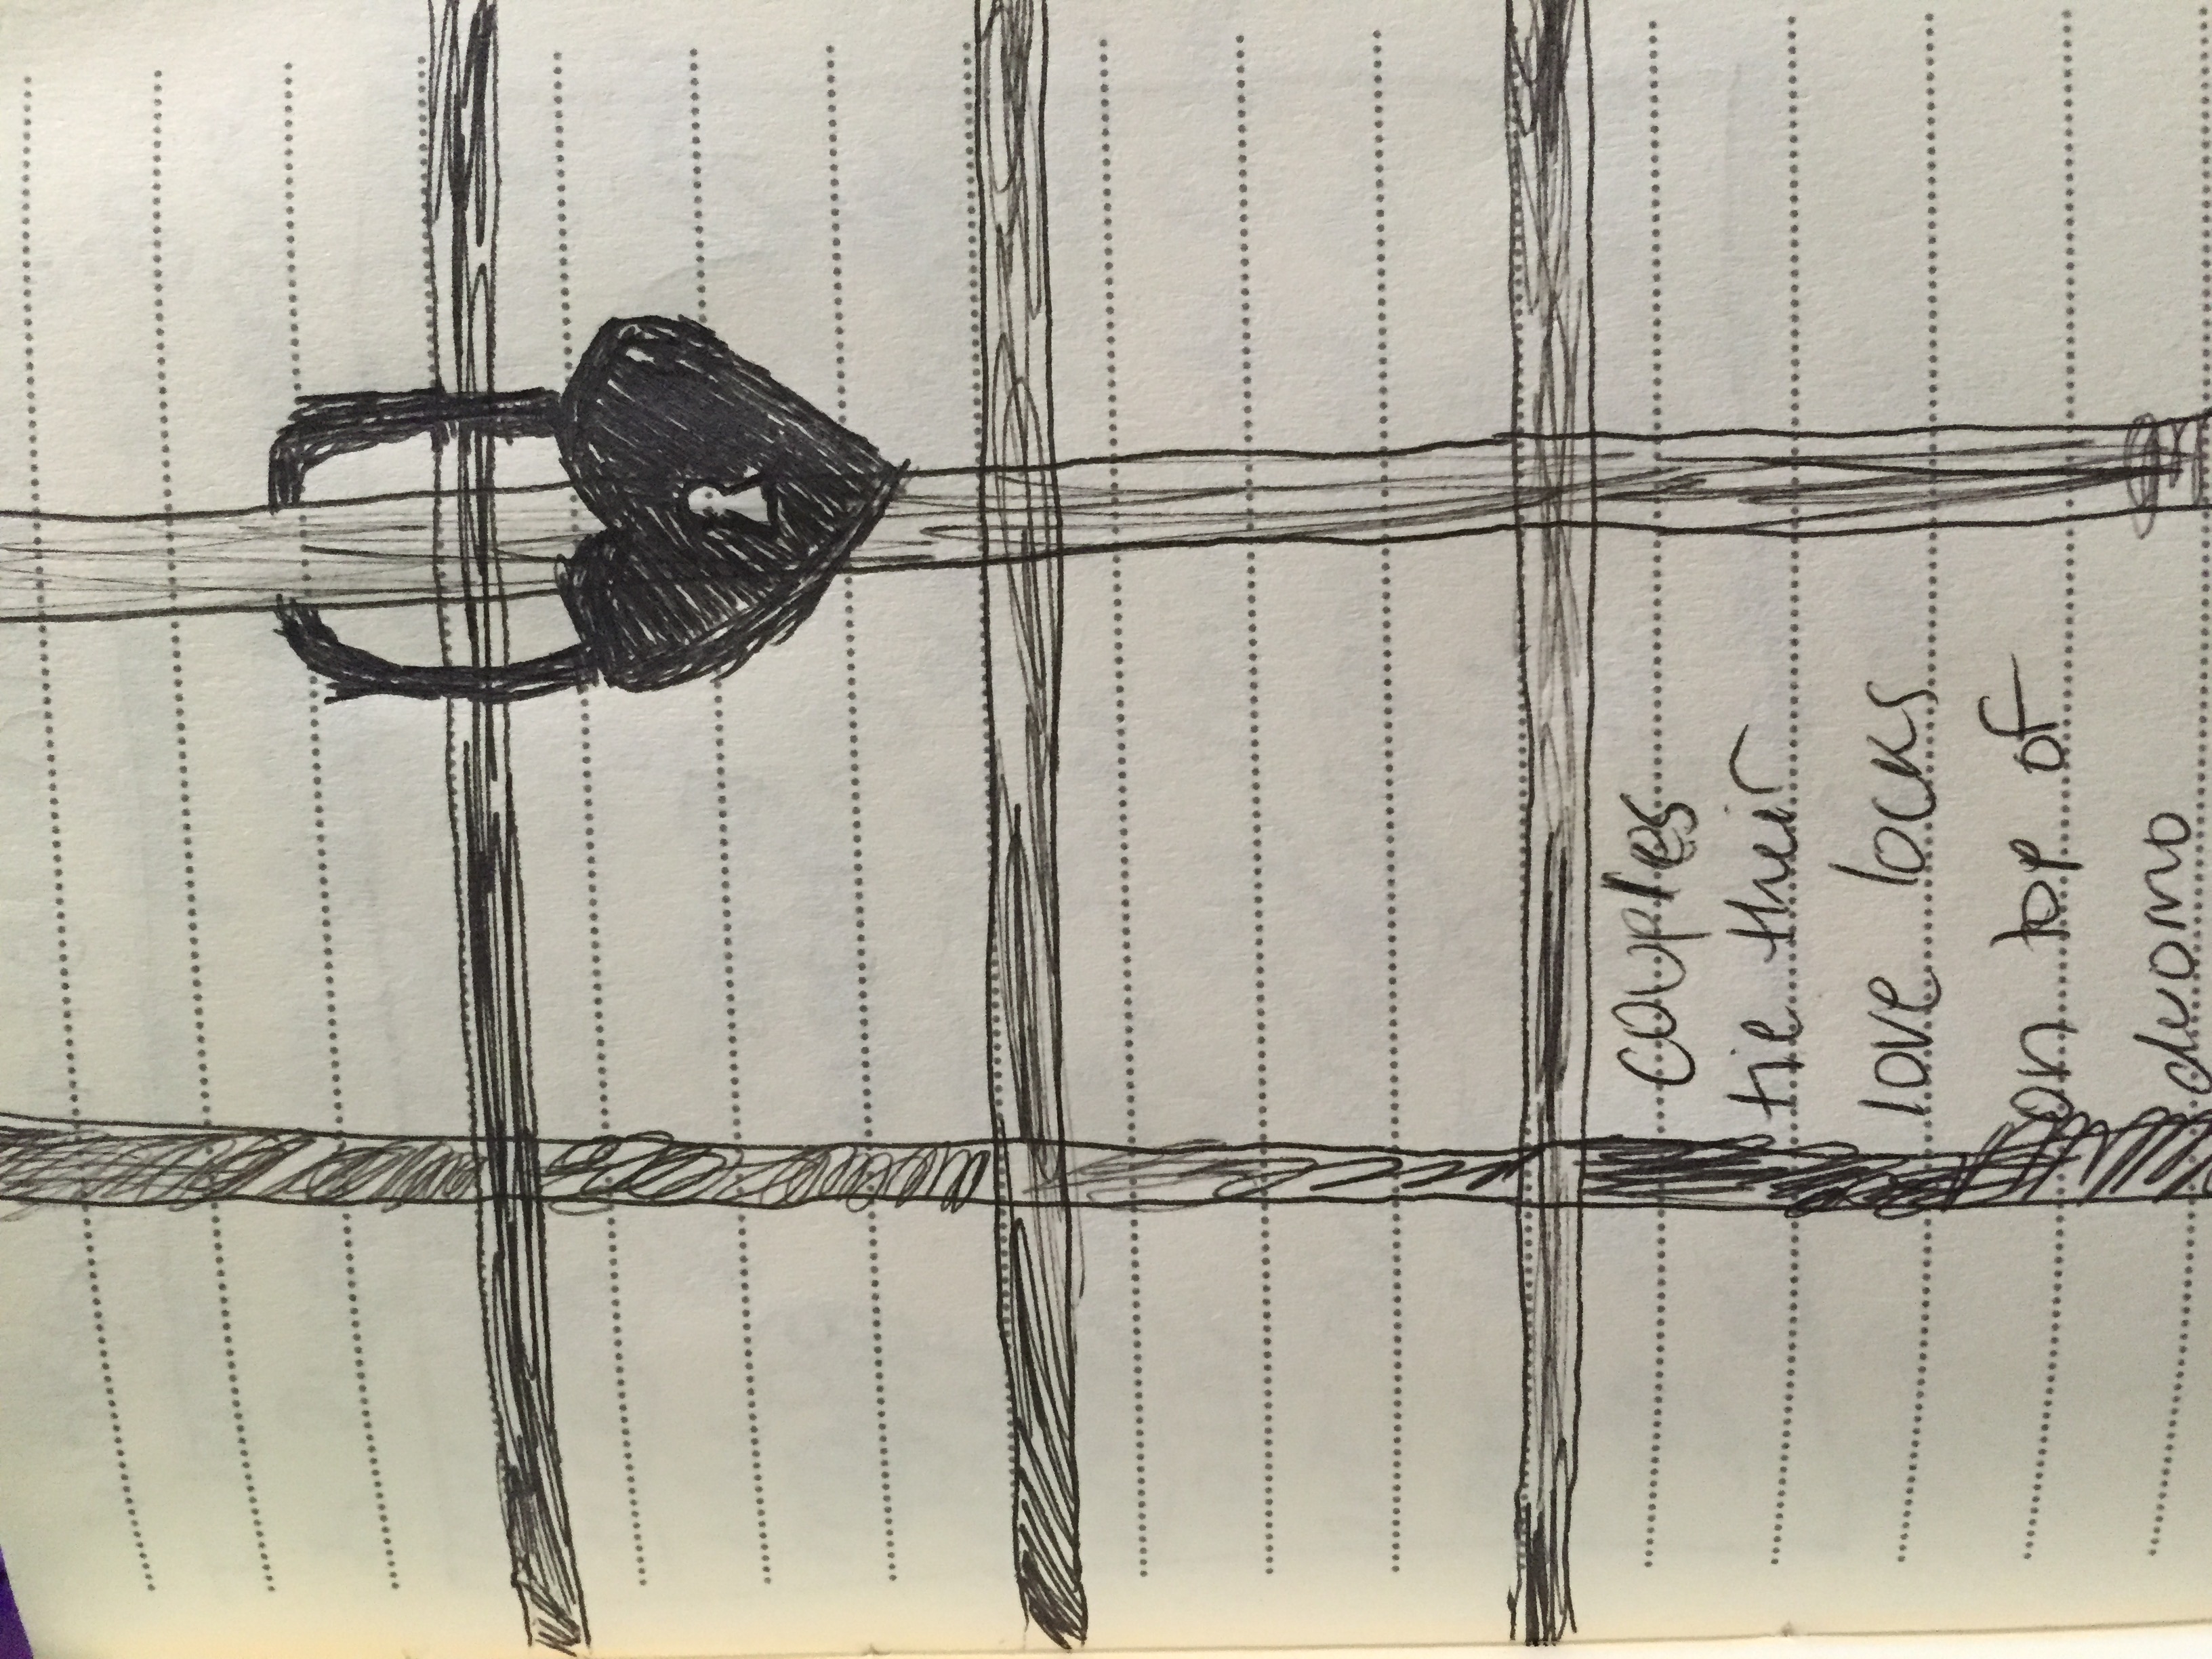 couples
tie their
love locks
on top of
duomo